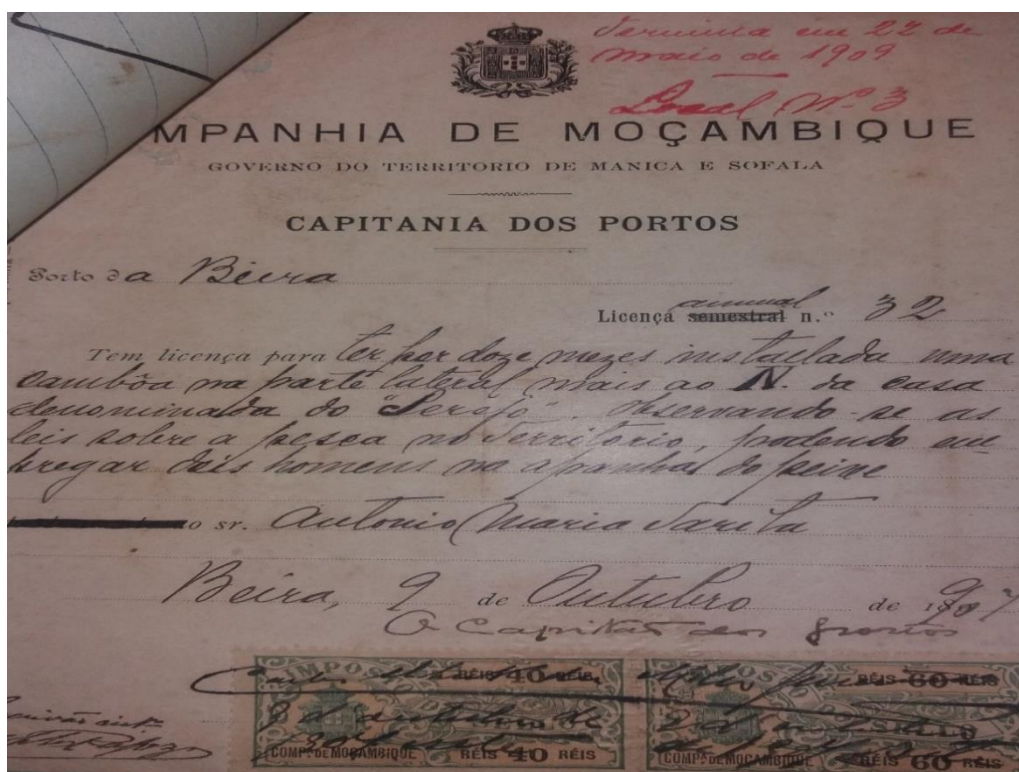 Termina em 22 de
Maio de 1909
Local Nº 3
MPANHIA DE MOÇAMBIQUE
GOVERNO DO TERRITORIO DE MANICA E SOFALA
CAPITANIA DOS PORTOS
Porto da Beira
annual
Licença semestral n.º 32
Tem licença para ter por doze mezes installada uma
cambôa na parte lateral mais ao N. da casa
denominada do "Serojo". Observando-se as
leis sobre a pesca no Territorio, podendo em
pregar dois homens na apanha do peixe
o sr. Antonio Maria
Beira, 9 de Outubro de
O Capitão dos Portos
IMPOS RÉIS 40 RÉIS RÉIS 60 RÉIS
8 de outubro de
COMP. DE MOÇAMBIQUE RÉIS 40 RÉIS COMP. DE MOÇAMBIQUE RÉIS 60 RÉIS